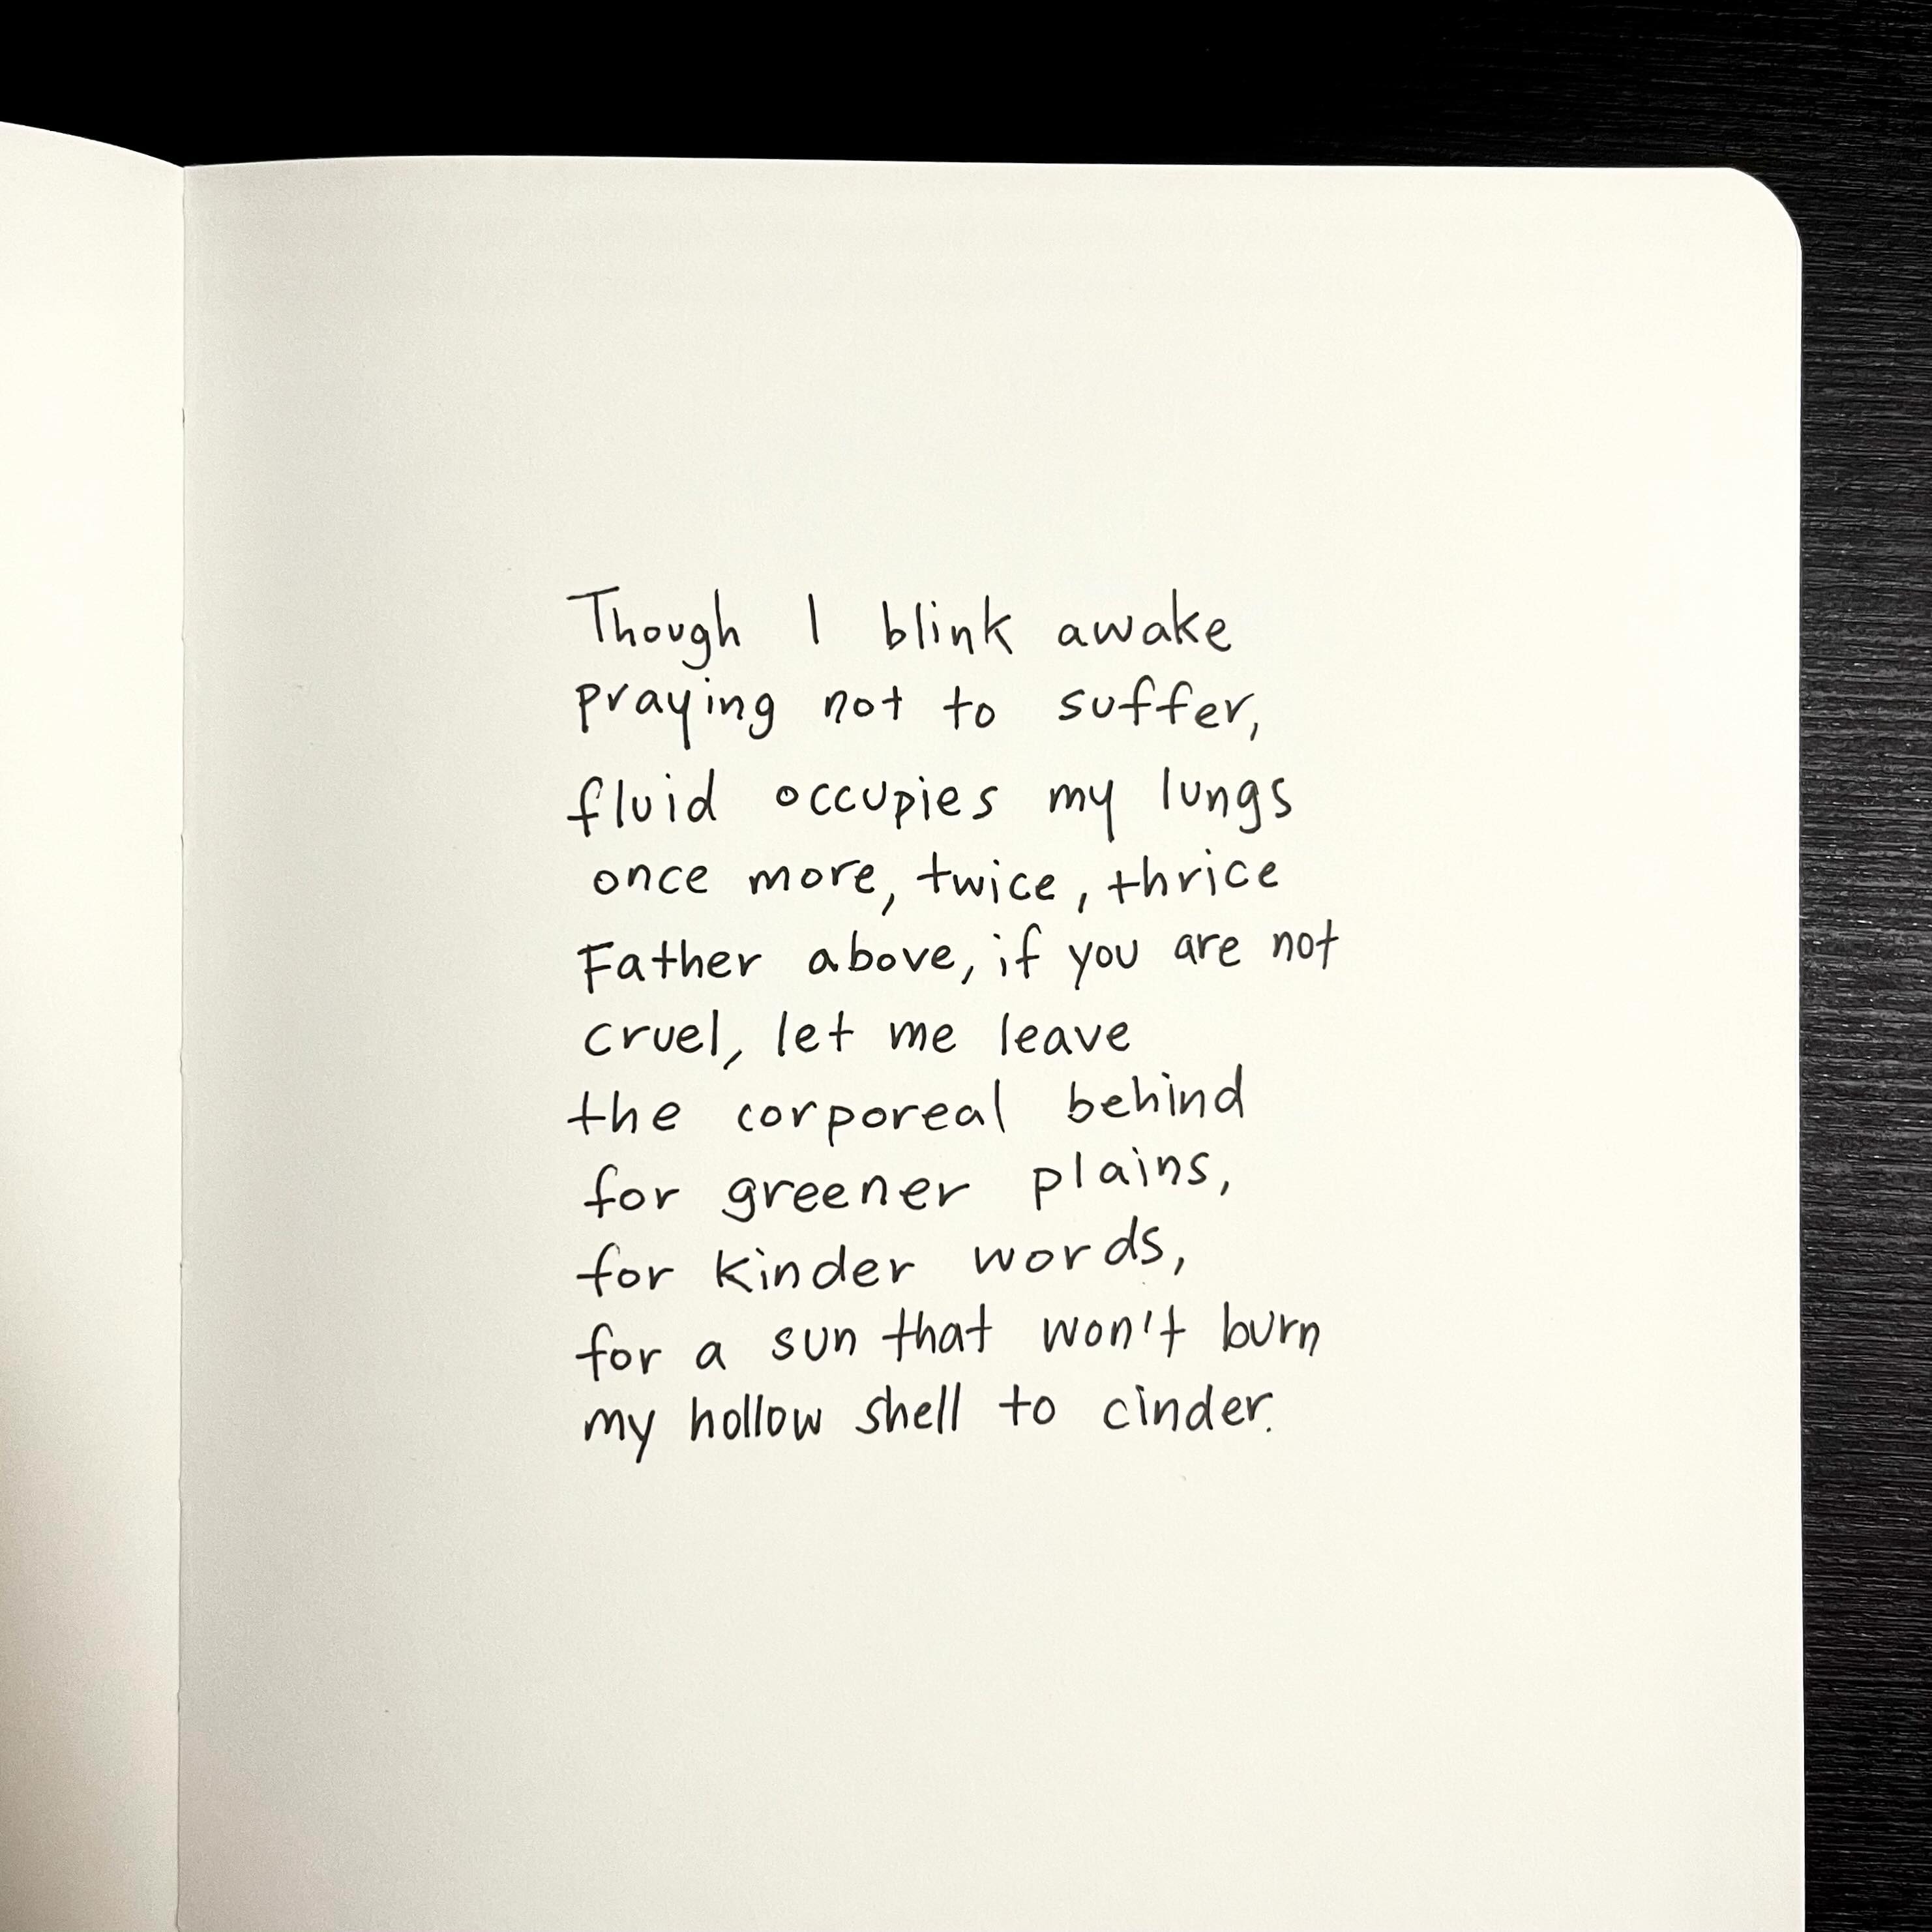 Though I blink awake
praying not to suffer,
fluid occupies my lungs
once more, twice, thrice
Father above, if you are not
cruel, let me leave
the corporeal behind
for greener plains,
for kinder words,
for a sun that won't burn
my hollow shell to cinder.